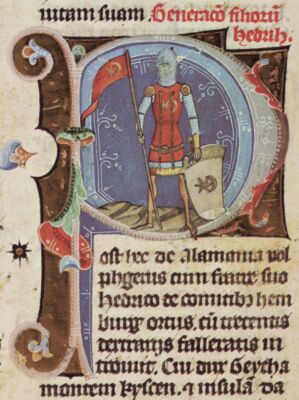 iutam suam. Generacō filiorū
hedrih.
Post hec de Alamonia uol
phgerus cum fratre suo
hedrico de comitibꝫ hem
burg ortus, cū trecentis
dextrariis falleratis in
troiuit. Cui dux Geycha
montem kyscen. ⁊ insulā da